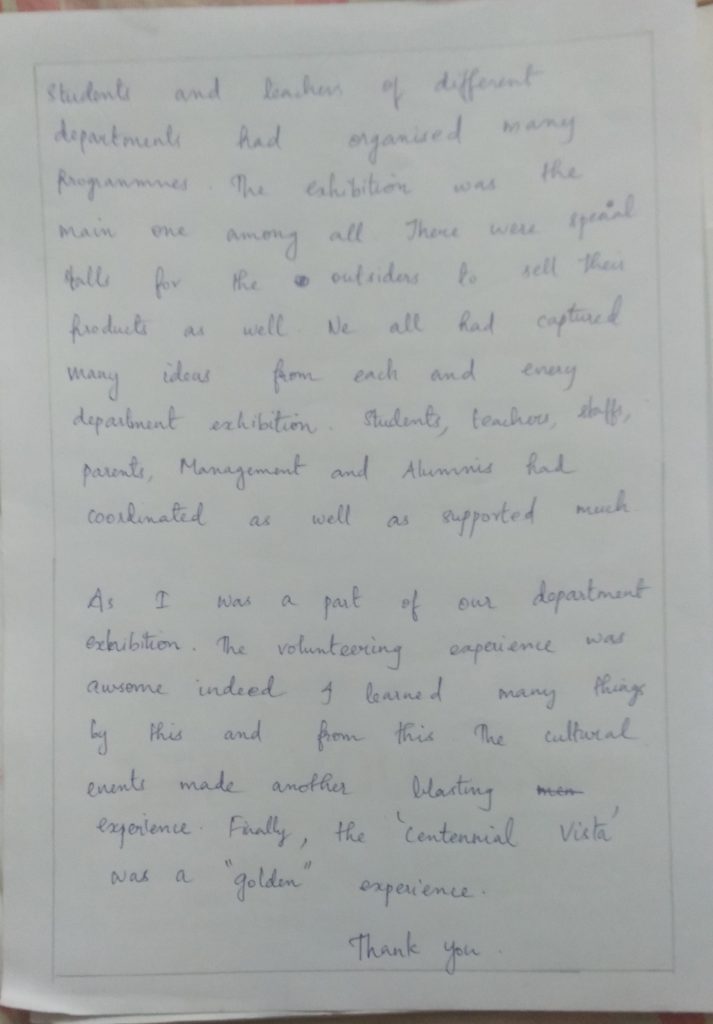 Students and teachers of different
departments had organised many
Programmes. The exhibition was the
main one among all. There were special
stalls for the outsiders to sell their
products as well. We all had captured
many ideas from each and every
department exhibition. Students, teachers, staffs,
parents, Management and Alumnis had
coordinated as well as supported much.
As I was a part of our department
exhibition. The volunteering experience was
awsome indeed I learned many things
by this and from this. The cultural
events made another blasting men
experience. Finally, the 'centennial Vista'
was a "golden" experience.
Thank you.